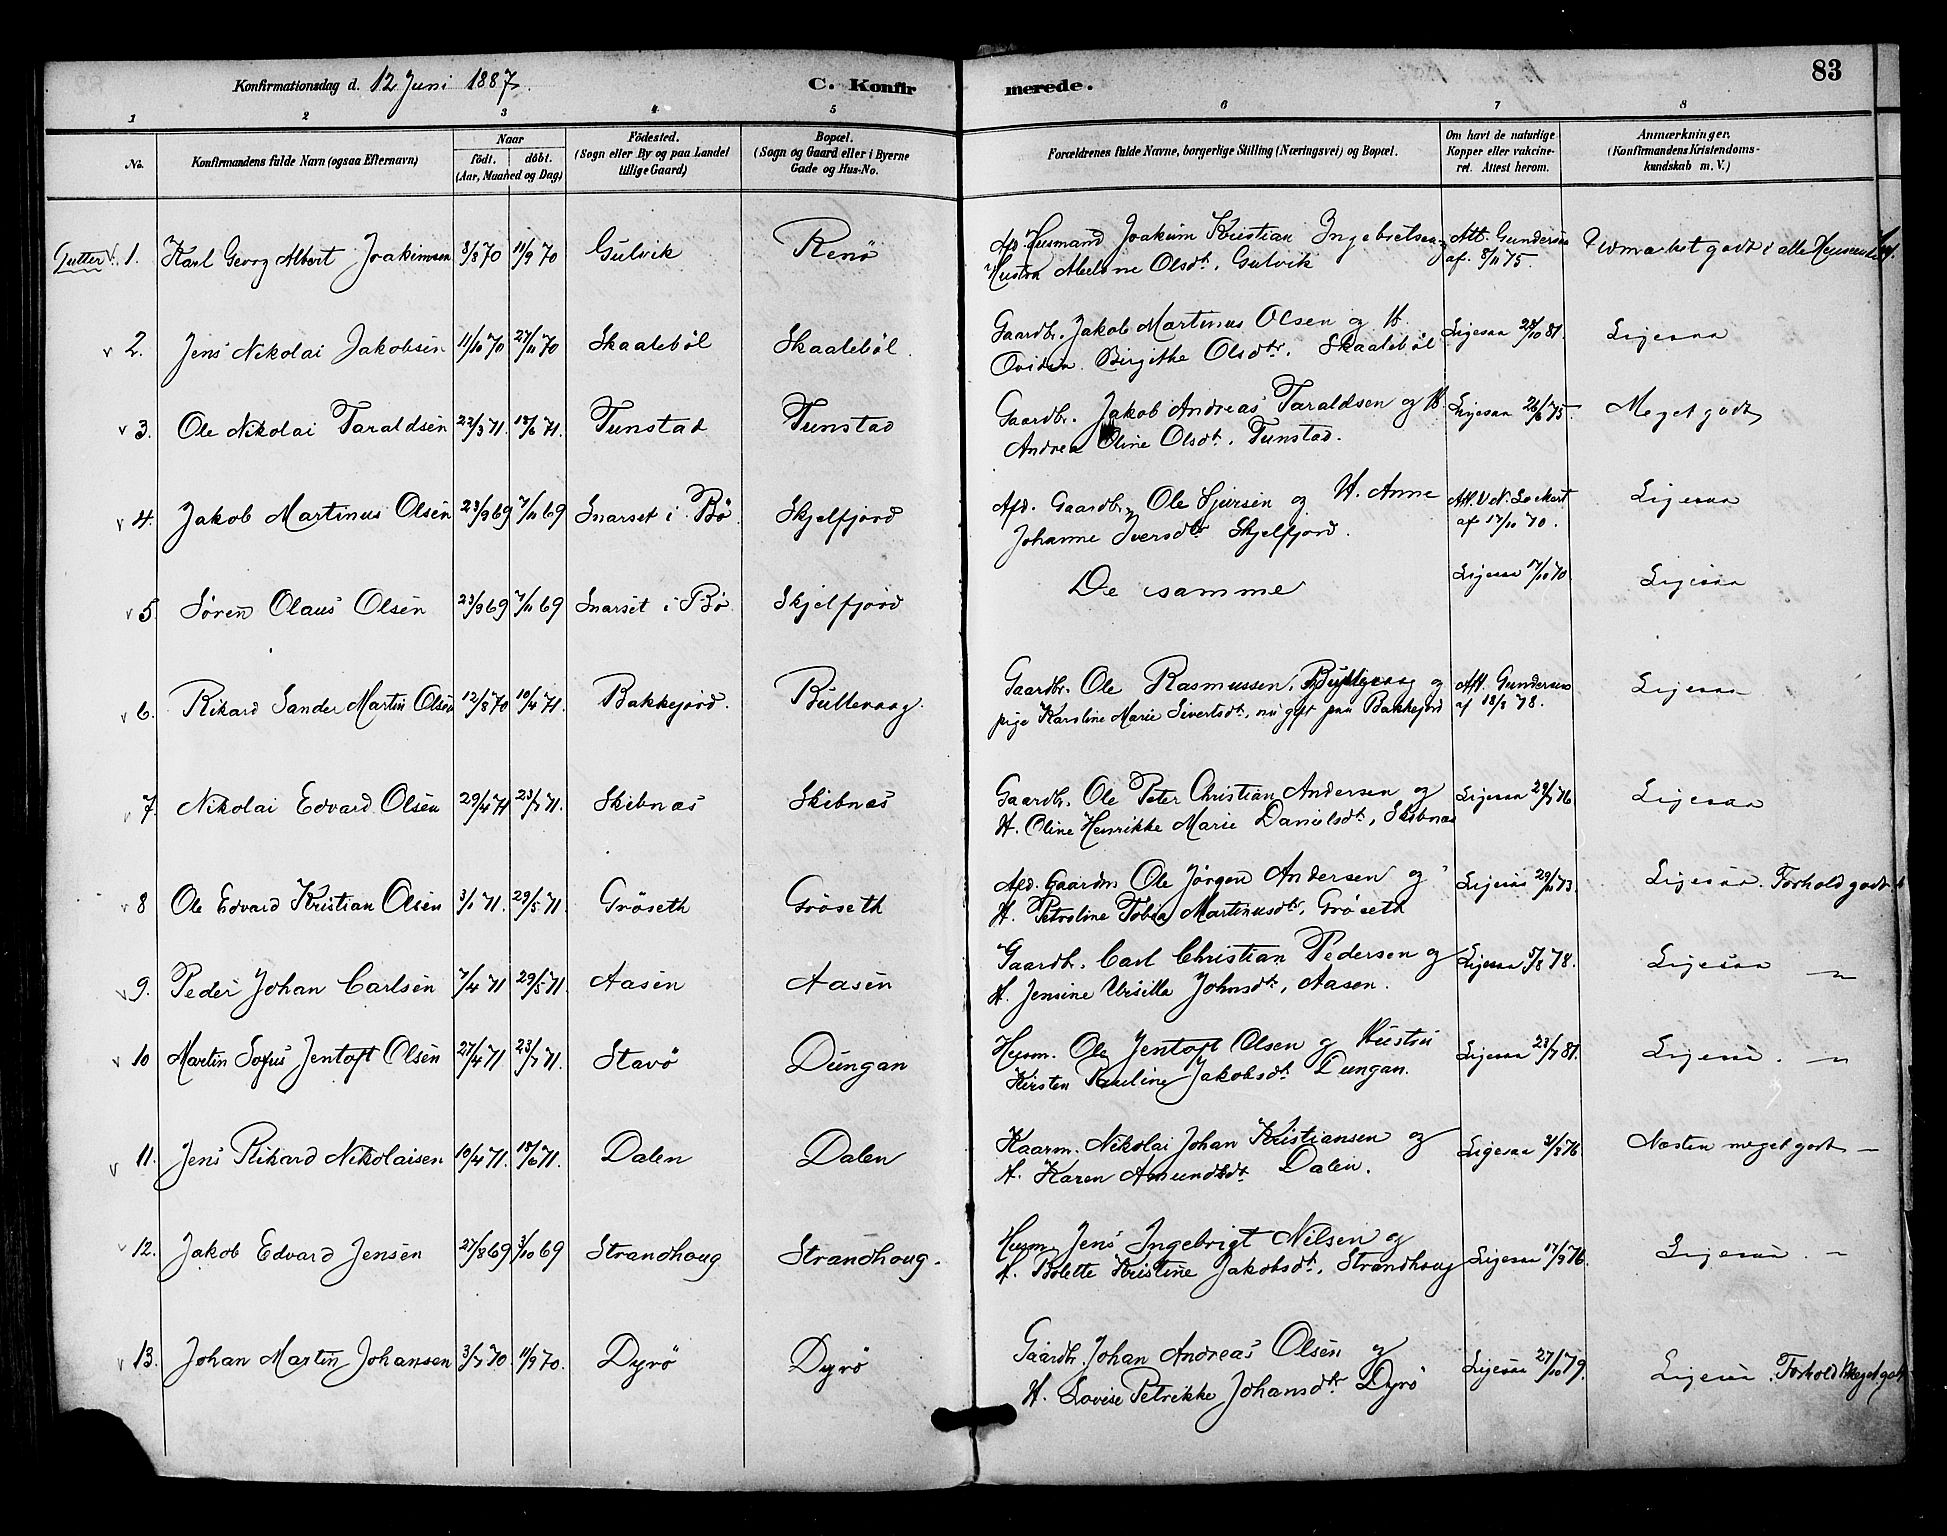 83
Konfirmationsdag d. 12 Juni 1887. C. Konfirmerede.
1 2 3 4 5 6 7 8
No. Konfirmandens fulde Navn (ogsaa Efternavn) Naar født. døbt. (Aar, Maaned og Dag) Fødested. (Sogn eller By og paa Landet tillige Gaard) Bopæl. (Sogn og Gaard eller i Byerne Gade og Hus-No. Forældrenes fulde Navne, borgerlige Stilling (Næringsvei) og Bopæl. Om havt de naturlige Kopper eller vakcineret. Attest herom. Anmærkninger. (Konfirmandens Kristendomskundskab m. V.)
Gutter 1. Karl Georg Albert Joakimsen 3/8 70 11/9 70 Gulvik Renø Afd. Husmand Joakim Kristian Ingebretsen og Att. Gundersen Udmærket godt i alle Henseender
Hustru Abelone Olsdt. Gulvik af 8/11 75.
2. Jens Nikolai Jakobsen 11/10 70 27/11 70 Skaalebøl Skaalebøl. Gaardbr. Jakob Martinus Olsen og H. Ligesaa 28/10 81. Ligesaa
Ovidia Birgithe Olsdtr. Skaalebøl
3. Ole Nikolai Taraldsen 22/3 71. 18/6 71. Tunstad Tunstad Gaardbr. Jakob Andreas Taraldsen og H. Ligesaa 26/6 75. Meget godt
Andrea Oline Olsdt. Tunstad.
4. Jakob Martinus Olsen 23/9 69 7/11 69 Snarset i Bø Skjelfjord Afd. Gaardbr. Ole Sjursen og H. Anne Att. V. N. Lockert Ligesaa
Johanne Iversdtr Skjelfjord. af 17/10 70.
5. Søren Olaus Olsen 23/9 69 7/11 69 Snarset i Bø Skjelfjord De samme Ligesaa 17/10 70 Ligesaa
6. Rikard Sander Martin Olsen 12/8 70 10/4 71. Bakkejord. Bullevaag. Gaardbr. Ole Rasmussen, og Att. Gundersen Ligesaa
pige Karoline Marie Sivertsdt., nu gift paa Bakkejord af 18/8 78.
7. Nikolai Edvard Olsen 29/4 71 23/7 71. Skibnæs Skibnæs Gaardbr. Ole Peter Christian Andersen og Ligesaa 29/7 76 Ligesaa
H. Oline Henrikke Marie Danielsdt., Skibnæs
8 Ole Edvard Kristian Olsen 3/1 71. 29/5 71. Grøseth Grøseth Afd. Gaardm. Ole Jørgen Andersen og Ligesaa 29/11 73. Ligesaa. Forhold godt
H. Petroline Tobia Martinusdtr, Grøseth
9. Peder Johan Carlsen 7/4 71 29/5 71. Aasen Aasen Gaardbr. Carl Christian Pedersen og Ligesaa 5/8 78. Ligesaa —„—
H. Jensine Ursilla Johnsdt., Aasen.
10 Martin Sofus Jentoft Olsen 27/4 71 23/7 71. Stavø Dungan Husm. Ole Jentoft Olsen og Hustru Ligesaa 23/7 81. Ligesaa. —„—
Kirsten Pauline Jakobsdt. Dungan.
11. Jens Rikard Nikolaisen 10/4 71. 18/6 71. Dalen Dalen Kaarm. Nikolai Johan Kristiansen og Ligesaa 31/8 76 Næsten meget godt —
H. Karen Amundsdt. Dalen.
12. Jakob Edvard Jensen 27/8 69 3/10 69 Strandhoug Strandhoug. Husm. Jens Ingebrigt Nilsen og Ligesaa 17/9 76. Ligesaa. —
H. Bolette Kristine Jakobsdt., Strandhoug
13. Johan Martin Johansen 3/7 70 11/9 70. Dyrø Dyrø Gaardbr. Johan Andreas Olsen og Ligesaa 27/10 79. Ligesaa. Forhold Meget godt
H. Lovise Petrikke Johansdtr Dyrø